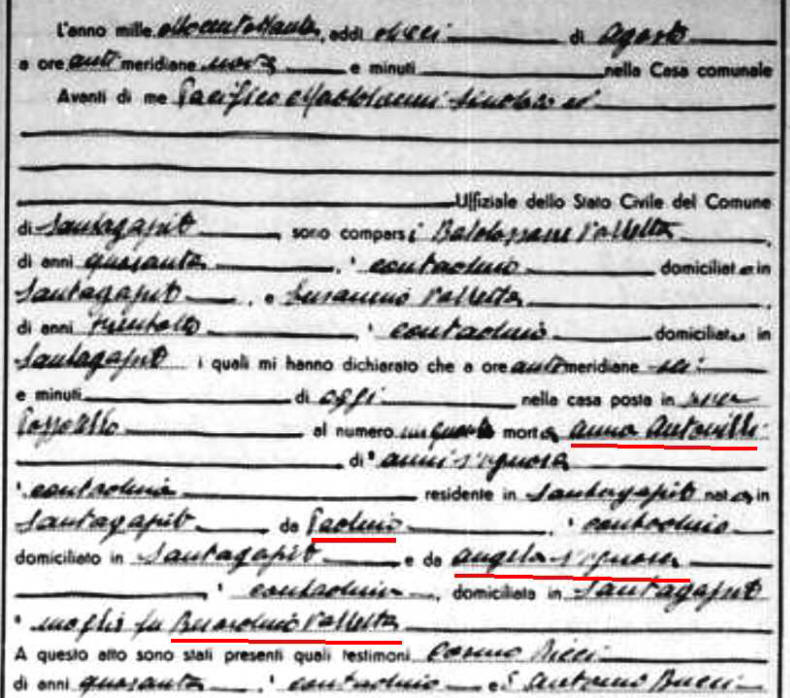 L'anno mille ottocentottanta, addi dieci di agosto
a ore anti meridiane nove e minuti nella Casa comunale
Avanti di me Pacifico Sindaco ed
Uffiziale dello Stato Civile del Comune
di Santagapito sono comparsi Baldassarre Valletta,
di anni quaranta, contadino domiciliato in
Santagapito, e Valletta,
di anni trentotto, contadino domiciliato in
Santagapito i quali mi hanno dichiarato che a ore anti meridiane sei
e minuti di oggi nella casa posta in
al numero morta anna antonilli
di anni s'ignora
contadina residente in Santagapito nata in
Santagapito da Paolino contadino
domiciliato in Santagapito e da angela s'ignora
contadina, domiciliata in Santagapito
moglie fu Valletta
A questo atto sono stati presenti quali testimoni Cosmo Ricci
di anni quaranta contadino e Antonio Bucci